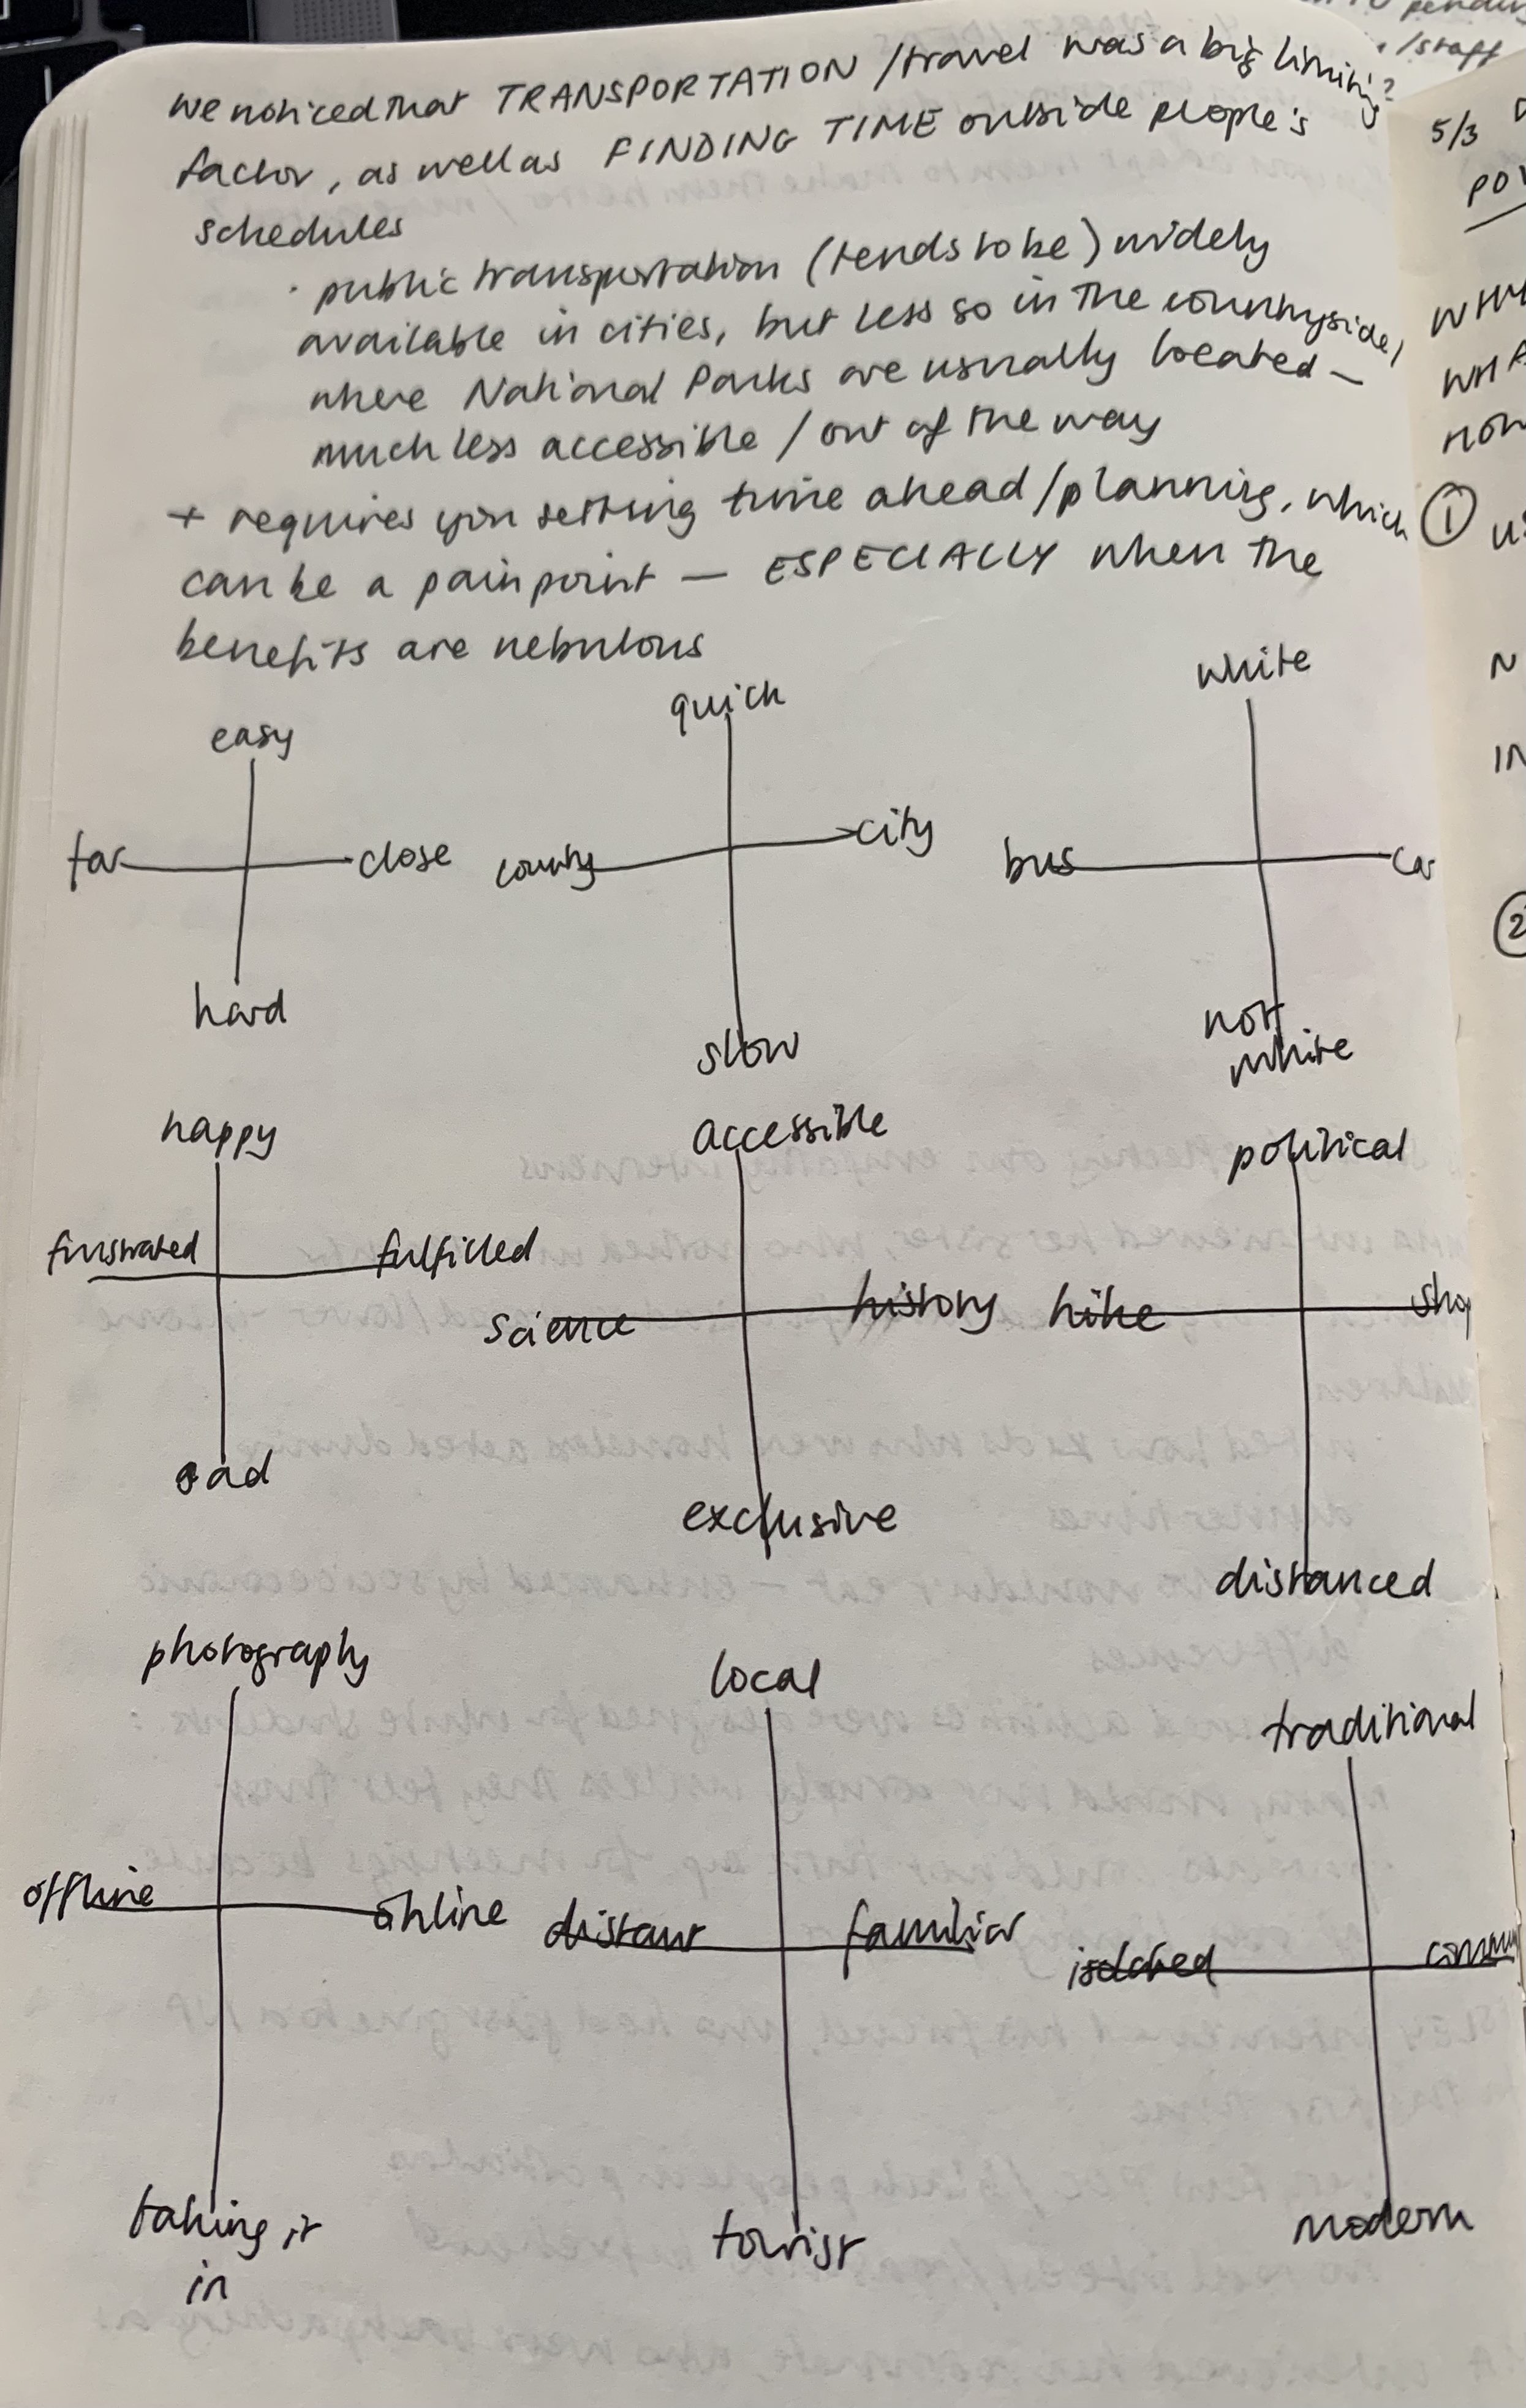 we noticed that TRANSPORTATION / travel was a big liminy?
factor, as well as FINDING TIME outside people's
schedules
· public transportation (tends to be) widely
available in cities, but less so in the countryside,
where National Parks are usually located –
much less accessible / out of the way
+ requires you setting time ahead / planning, which
can be a pain point — ESPECIALLY when the
benefits are nebulous
easy
far close
hard
quick
country city
slow
white
bus car
not
white
happy
frustrated fulfilled
sad
accessible
science history
exclusive
political
hike shop
distanced
photography
offline online
taking it
in
local
distant familiar
tourist
traditional
isolated
modern
/staff
5/3
①
②